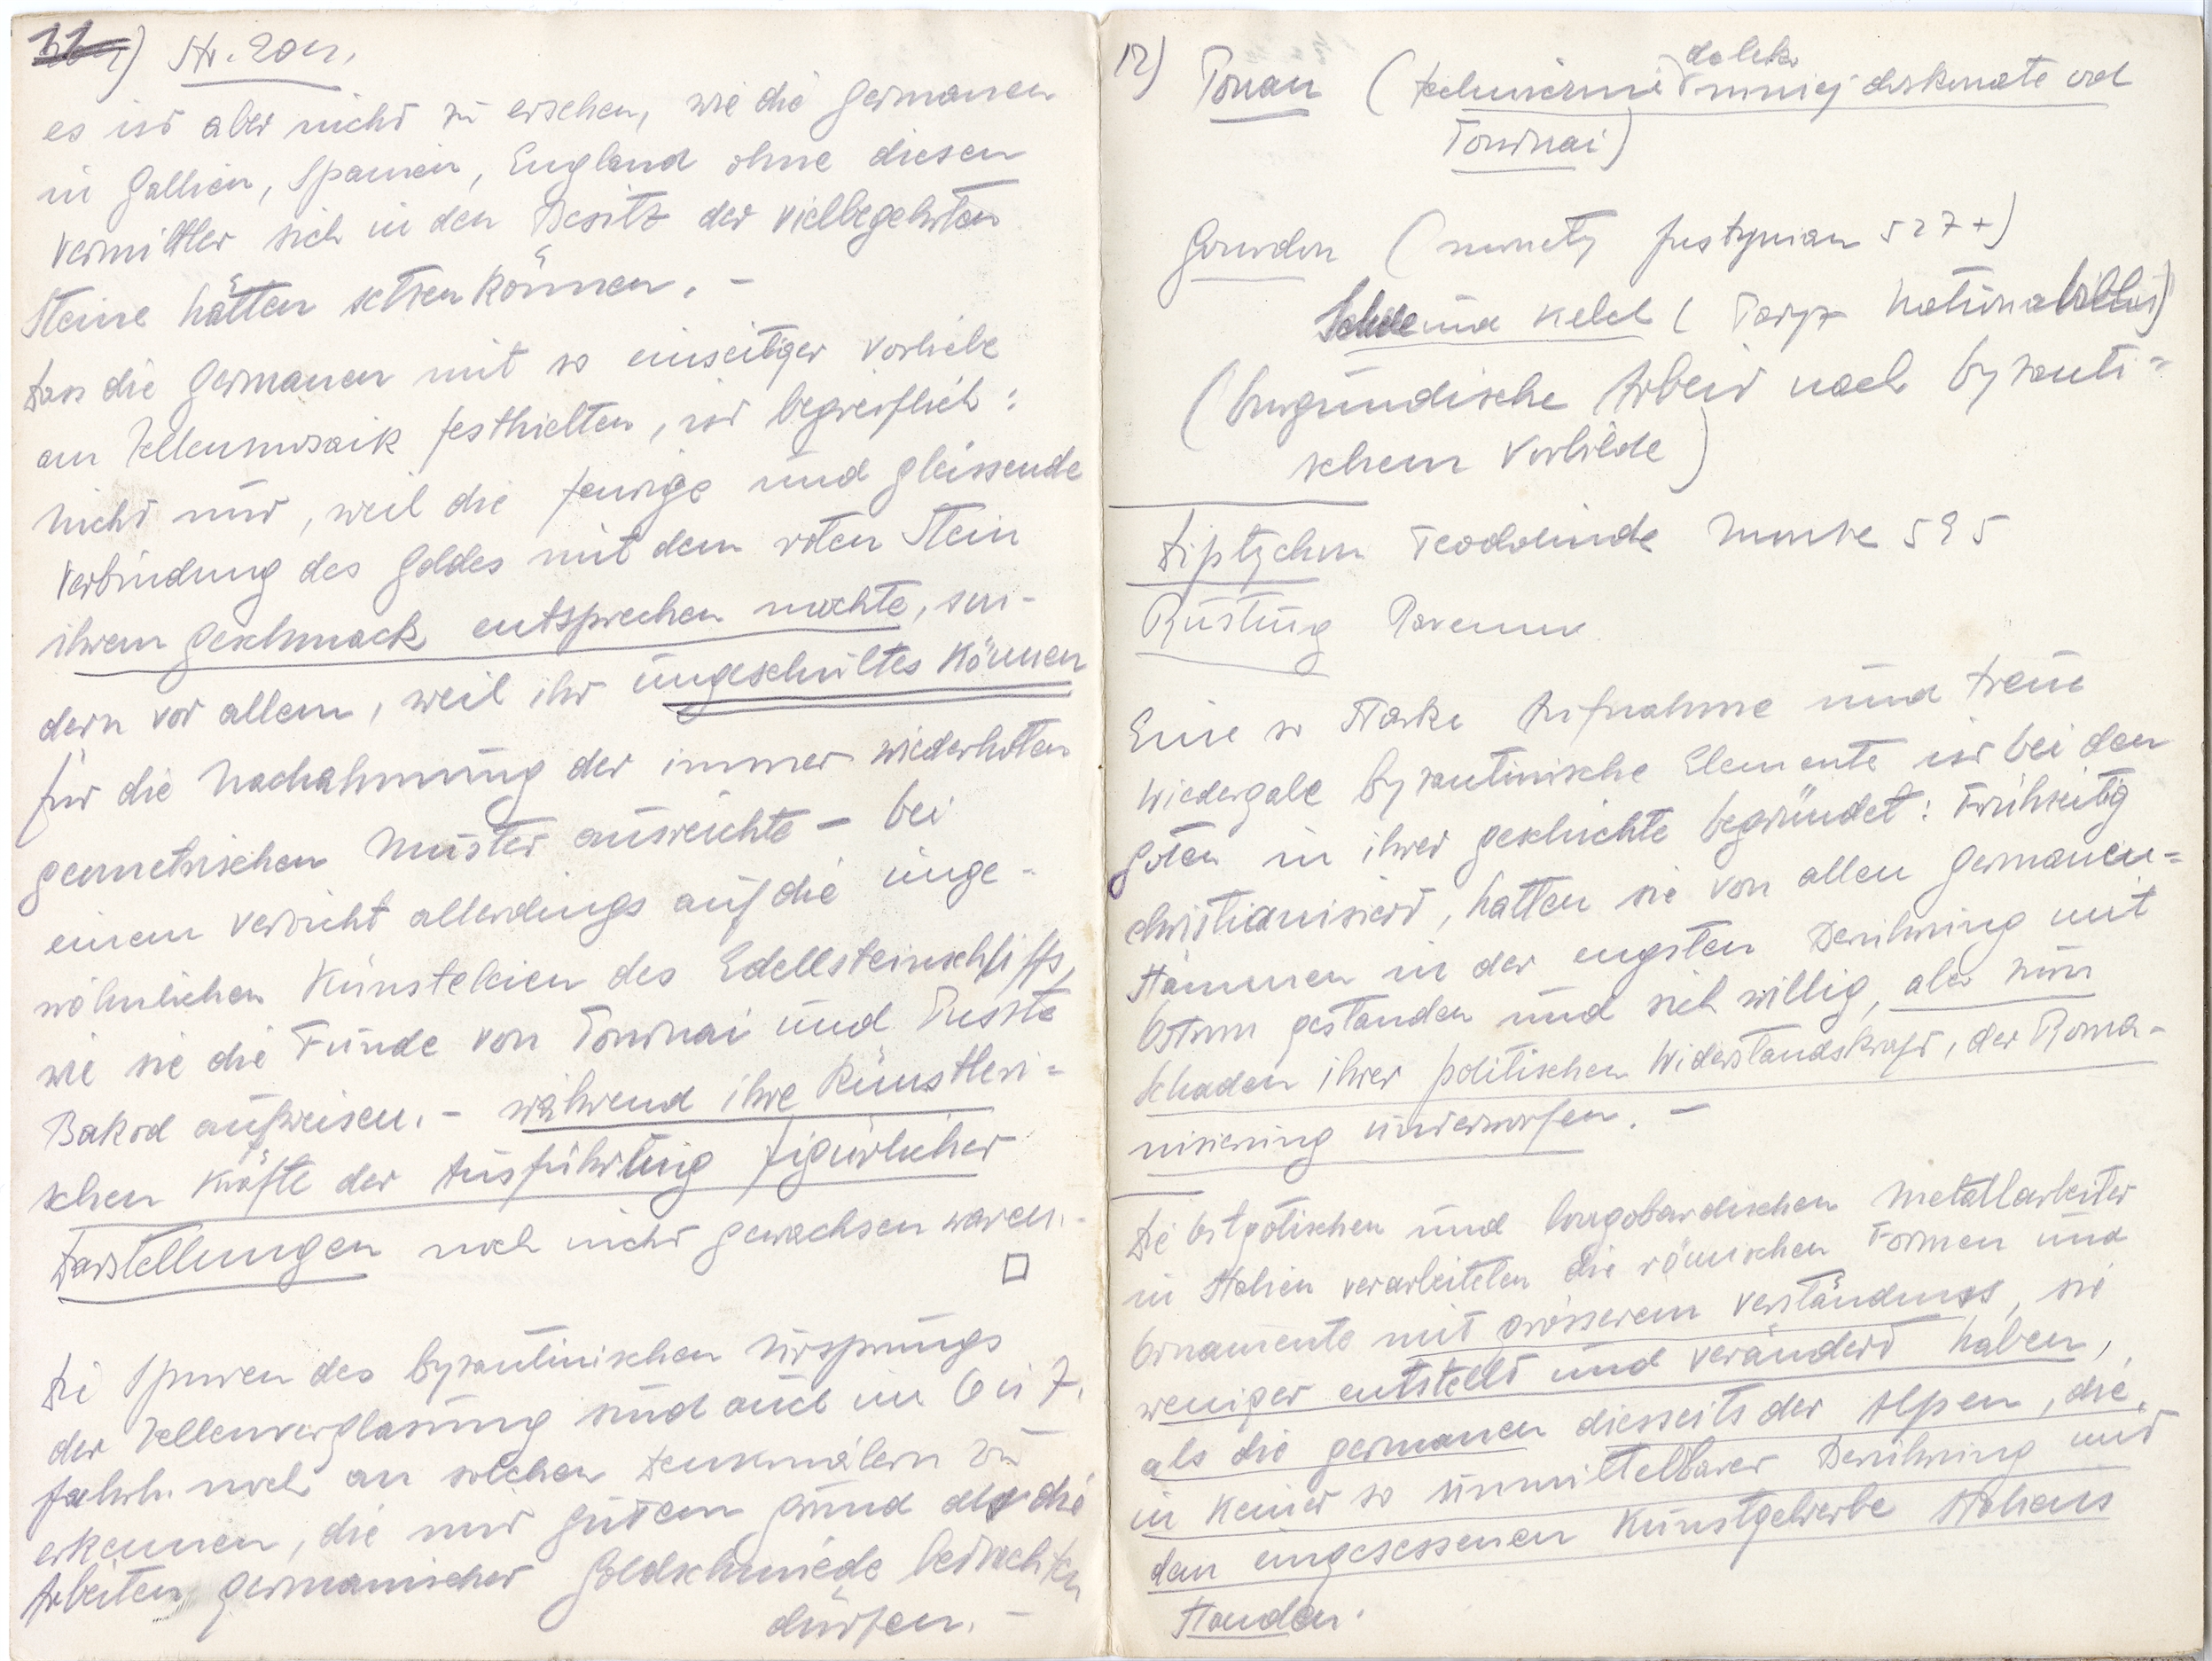 11) Str. 201.
es ist aber nicht zu ersehen, wie die Germanen
in Gallien, Spanien, England ohne diesen
Vermittler sich in den Besitz der vielbegehrten
Steine hätten setzen können. –
Dass die Germanen mit so einseitiger Vorliebe
am Zellenmosaik festhielten, ist begreiflich:
nicht nur, weil die feurige und gleissende
Verbindung des Goldes mit dem roten Stein
ihrem Geschmack entsprechen mochte, son-
dern vor allem, weil ihr ungeschultes Können
für die Nachahmung der immer wiederholten
geometrischen Muster ausreichte – bei
einem Verzicht allerdings auf die unge-
wöhnlichen Künsteleien des Edellsteinschliffs,
wie sie die Funde von Tournai und Puszta
Bakod aufweisen. – während ihre künstleri=
schen Kräfte der Ausführung figürlicher
Darstellungen noch nicht gewachsen waren. –
Die Spuren des byzantinischen Ursprungs
der Zellenverglasung sind auch im 6 u 7.
Jahrh. noch an solchen Denkmälern zu
erkennen, die mir gutem Grund als die
Arbeiten germanischer Goldschmiede betrachten
dürfen. –
12) Pouan (technicznie daleko mniej doskonałe od
Tournai)
Gourdon (monety Justynian 527+)
Schale und Kelch (Paryż Nationalbibliot)
(burgundische Arbeit nach byzanti=
schem Vorbilde)
Diptychon Teodolinde Monza 595
Rüstung Ravenna
Eine so starke Aufnahme und treue
Wiedergabe byzantinische Elemente ist bei den
Goten in ihrer Geschichte begründet: Frühzeitig
christianisiert, hatten sie von allen Germanen=
stämmen in der engsten Berührung mit
Ostrom gestanden und sich willig, aber zum
Schaden ihrer politischen Widerstandskraft, der Roma-
nisierung unterworfen. –
Die Ostgotischen und longobardischen Metallarbeiter
in Italien verarbeiteten die römischen Formen und
Ornamente mit grösserem Verständnis, sie
weniger entstellt und verändert haben,
als die Germanen diesseits der Alpen, die
in keiner so unmittelbarer Berührung mit
dem eingesessenen Kunstgewerbe Italiens
standen.